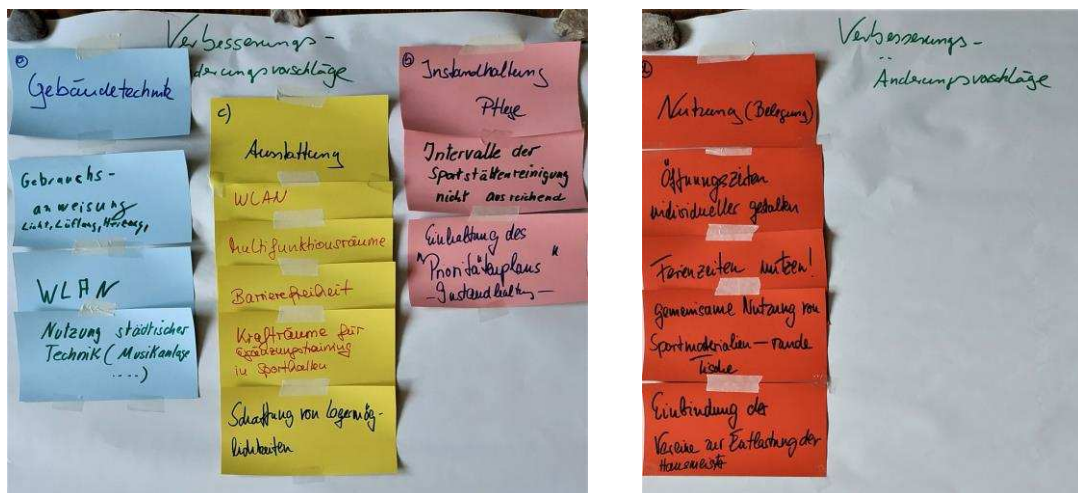 Verbesserungs-
derungsvorschläge
a)
Gebäudetechnik
Gebrauchs-
anweisung
Licht, Lüftung, Heizung,
WLAN
Nutzung städtischer
Technik (Musikanlage
....)
c)
Ausstattung
WLAN
Multifunktionsräume
Barrierefreiheit
Krafträume für
Ergänzungstraining
in Sporthallen
Schaffung von Lagermög-
lichkeiten
b)
Instandhaltung
Pflege
Intervalle der
Sportstättenreinigung
nicht ausreichend
Einhaltung des
"Prioritätenplans"
- Instandhaltung -
Verbesserungs-
Änderungsvorschläge
d)
Nutzung (Belegung)
Öffnungszeiten
individueller gestalten
Ferienzeiten nutzen!
gemeinsame Nutzung von
Sportmaterialien - runde
Tische
Einbindung der
Vereine zur Entlastung der
Hausmeister